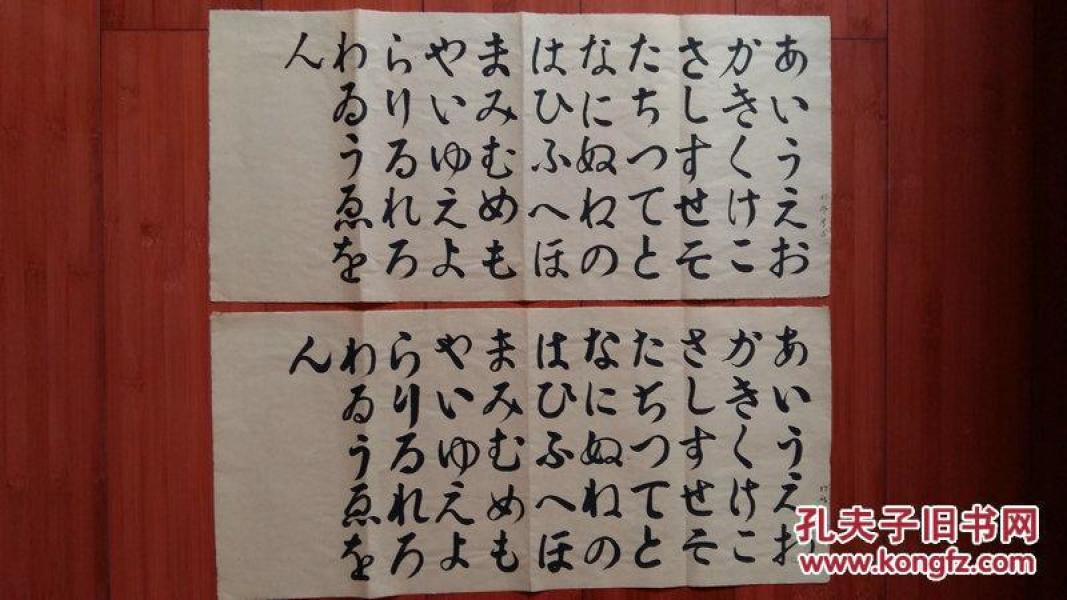 あいうえお
かきくけこ
さしすせそ
たちつてと
なにぬねの
はひふへほ
まみむめも
やいゆえよ
らりるれろ
わゐうゑを
ん
あいうえお
かきくけこ
さしすせそ
たちつてと
なにぬねの
はひふへほ
まみむめも
やいゆえよ
らりるれろ
わゐうゑを
ん
孔夫子旧书网
www.kongfz.com